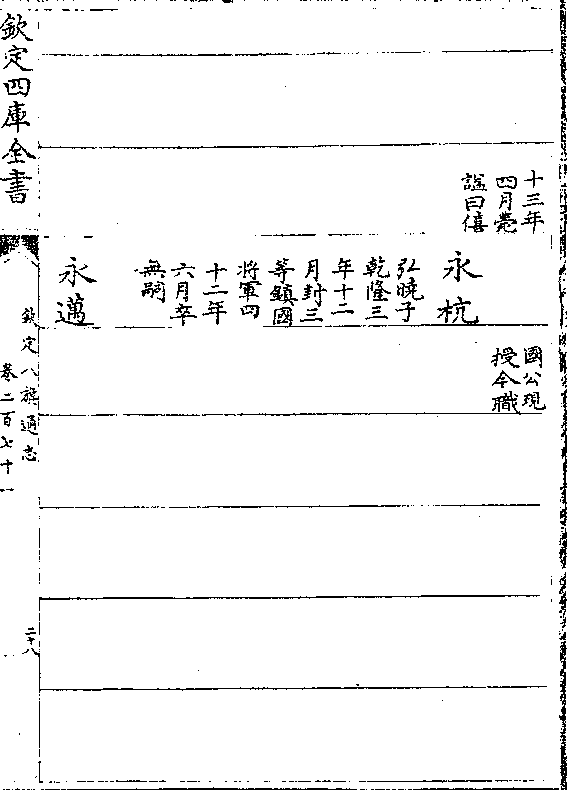 十三年
四月薨
諡曰僖
永杭
弘曉子
乾隆三
年十二
月封三
等鎮國
將軍四
十二年
六月卒
無嗣
永邁
國公現
授今職
欽定四庫全書
欽定八旗通志
卷二百七十一
二十八